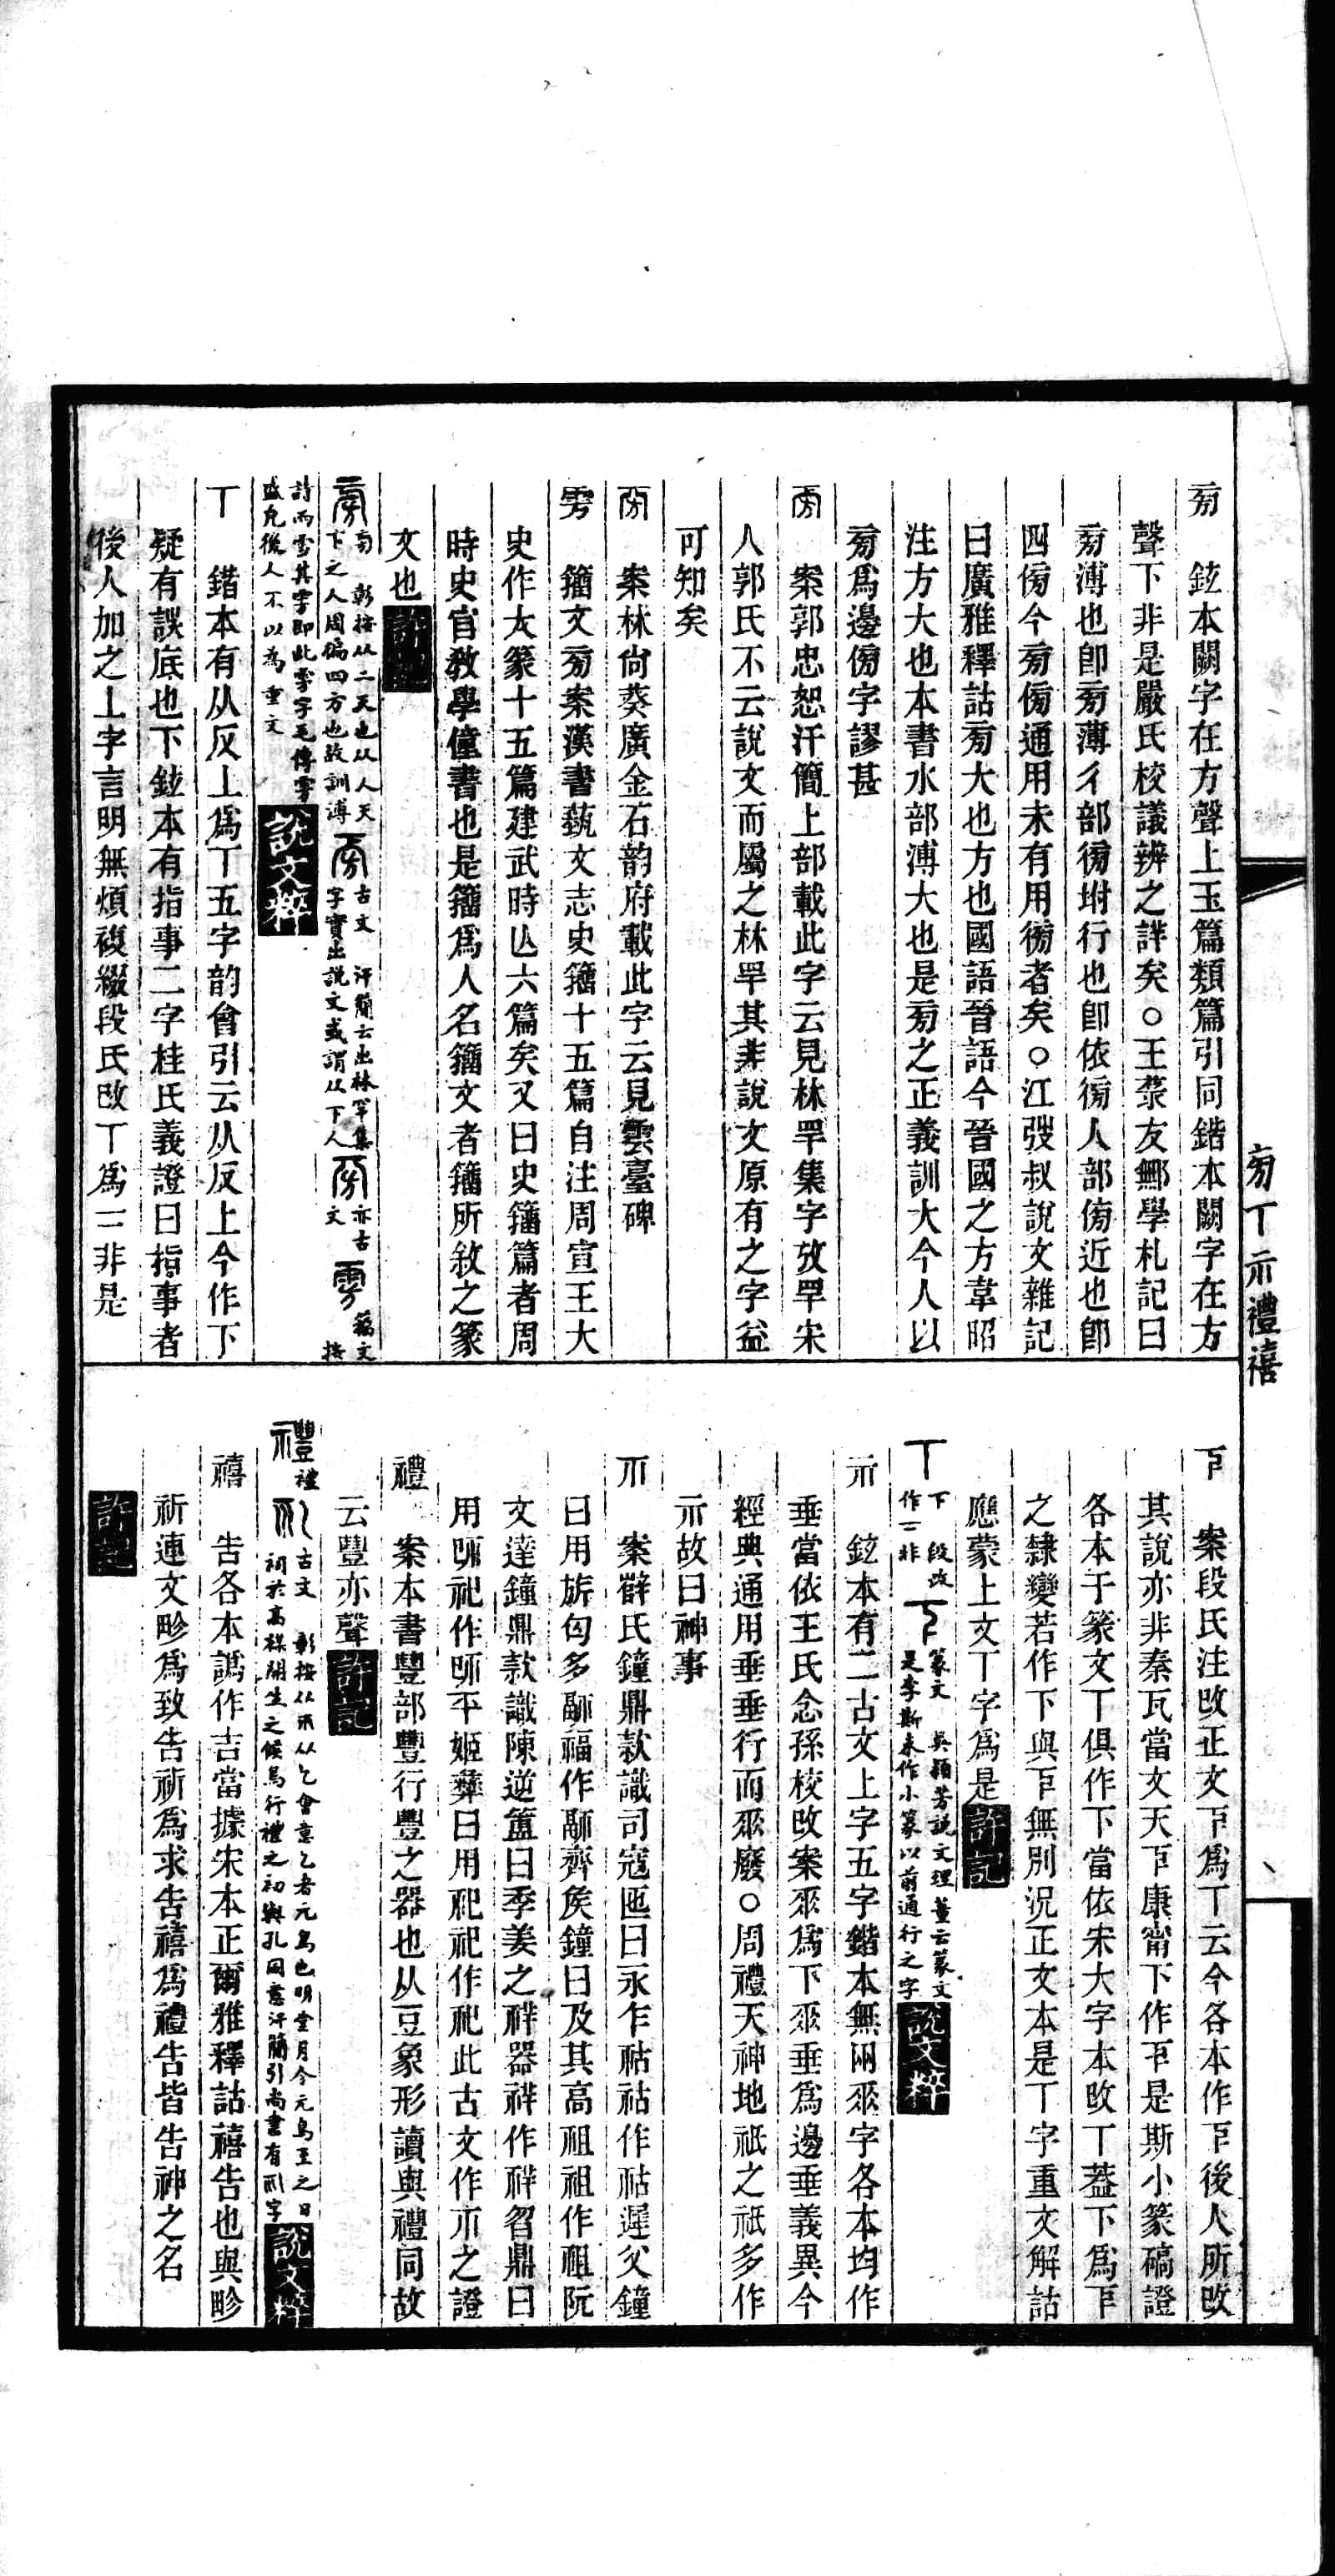 㫄丅示禮禧
㫄 鉉本闕字在方聲上玉篇類篇引同鍇本闕字在方
聲下非是嚴氏校議辨之詳矣○王菉友鄦學札記曰
㫄溥也卽㫄薄彳部徬坿行也卽依徬人部傍近也卽
四傍今㫄傍通用未有用徬者矣○江弢叔說文雜記
曰廣雅釋詁㫄大也方也國語晉語今晉國之方韋昭
注方大也本書水部溥大也是㫄之正義訓大今人以
㫄爲邊傍字謬甚
案郭忠恕汗簡上部載此字云見林罕集字攷罕宋
人郭氏不云說文而屬之林罕其非說文原有之字益
可知矣
案林尙葵廣金石韵府載此字云見雲臺碑
雱 籒文㫄案漢書蓺文志史籒十五篇自注周宣王大
史作大篆十五篇建武時亾六篇矣又曰史籒篇者周
時史官教學僮書也是籒爲人名籒文者籒所敘之篆
文也許記
㫄 彰按从二天也从人天
下之人周徧四方也故訓溥
古文 汗簡云出林罕集
字實出說文或謂从下人
亦古
文
籒文
按
詩雨雪其雱即此雱字毛傳雱
盛皃後人不以爲重文
說文粹
丅 鍇本有从反上爲丅五字韵會引云从反上今作下
疑有誤底也下鉉本有指事二字桂氏義證曰指事者
後人加之上字言明無煩複綴段氏改丅爲二非是
案段氏注改正文下爲丅云今各本作下後人所改
其說亦非秦瓦當文天下康甯下作下是斯小篆碻證
各本于篆文丅俱作下當依宋大字本改丅葢下爲下
之隸變若作下與下無別況正文本是丅字重文解詁
應蒙上文丅字爲是許記
丅 下 段改
作二非
篆文 吳穎芳說文理董云篆文
是李斯未作小篆以前通行之字
說文粹
示 鉉本有二古文上字五字鍇本無网𠂹字各本均作
垂當依王氏念孫校改案𠂹爲下𠂹垂爲邊垂義異今
經典通用垂垂行而𠂹廢○周禮天神地祇之祇多作
示故曰神事
案薛氏鐘鼎款識司寇匜曰永乍祜祜作祜遲父鐘
曰用旂匄多福福作福齊矦鐘曰及其高祖祖作祖阮
文達鐘鼎款識陳逆簠曰季姜之祥器祥作祥曶鼎曰
用祀祀作祀平姬彝曰用祀祀作祀此古文作示之證
禮 案本書豐部豐行豐之器也从豆象形讀與禮同故
云豐亦聲許記
禮 禮
古文 彰按从示从乞會意乞者元鳥也明堂月令元鳥至之日
祠於高禖開生之候鳥行禮之初與孔同意汗簡引尚書有字
說文粹
禧 吿各本譌作吉當據宋本正爾雅釋詁禧吿也與畛
祈連文畛爲致吿祈爲求吿禧爲禮吿皆吿神之名
許記